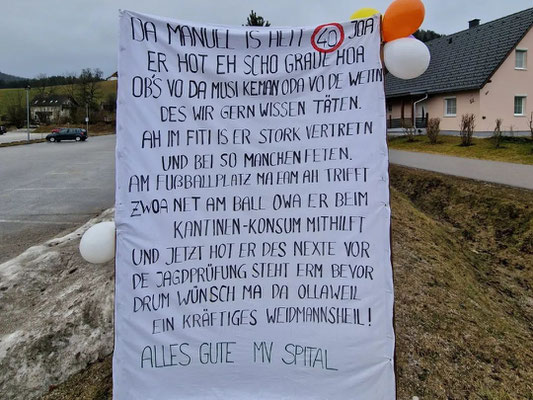 DA MANUEL IS HEIT 40 JOA
ER HOT EH SCHO GRAUE HOA
OB'S VO DA MUSI KEMAN ODA VO DE WEITN
DES WIR GERN WISSEN TÄTEN.
AH IM FITI IS ER STORK VERTRETN
UND BEI SO MANCHEN FETEN.
AM FUẞBALLPLATZ MA EAM AH TRIFFT
ZWOA NET AM BALL OWA ER BEIM
KANTINEN-KONSUM MITHILFT
UND JETZT HOT ER DES NEXTE VOR
DE JAGDPRÜFUNG STEHT ERM BEVOR
DRUM WÜNSCH MA DA OLLAWEIL
EIN KRÄFTIGES WEIDMANNSHEIL!
ALLES GUTE MV SPITAL